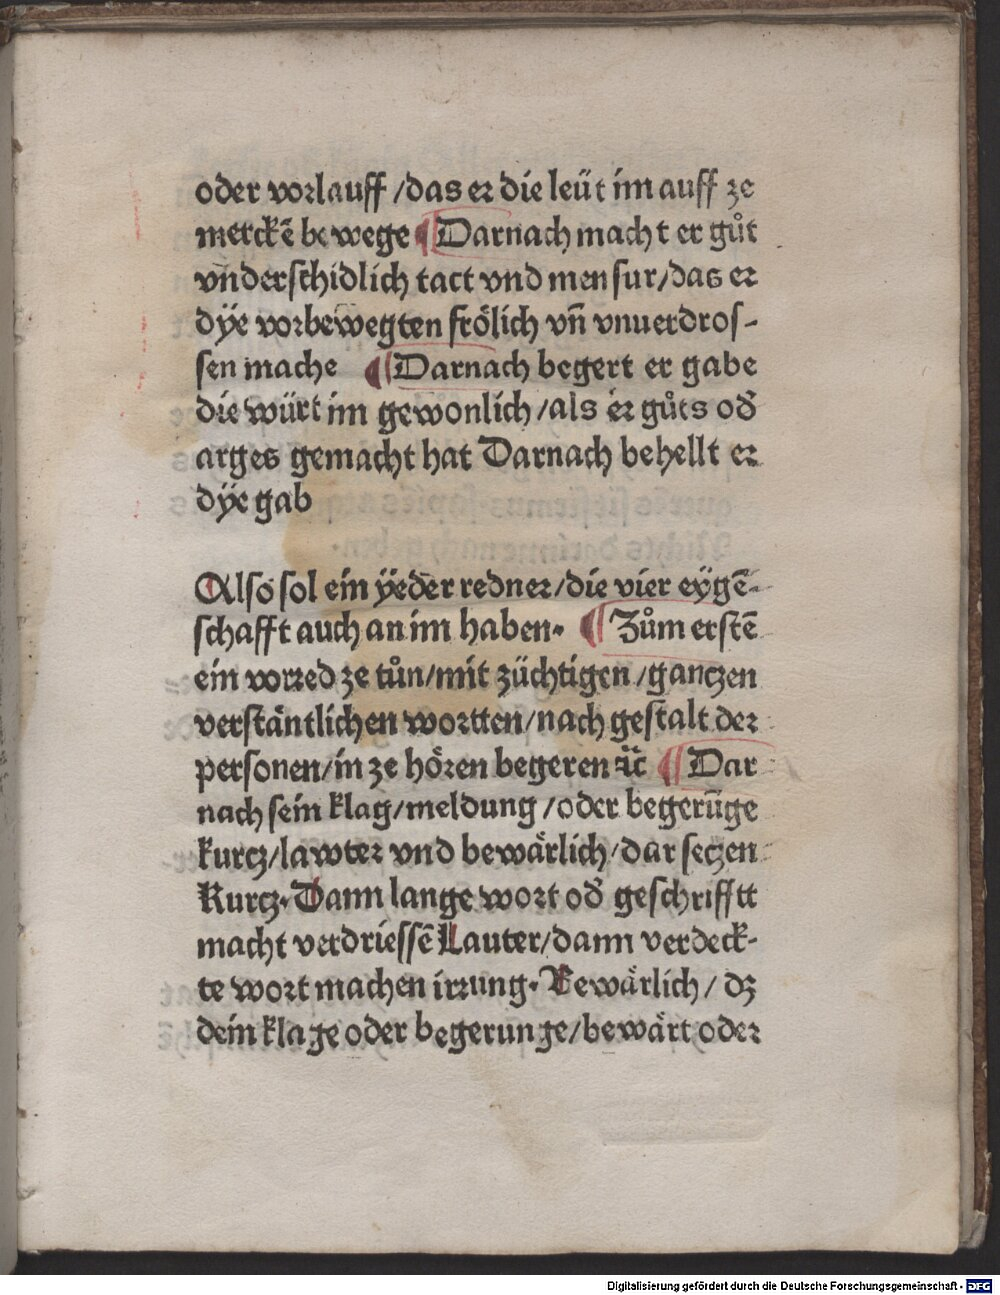 oder vorlauff /das er die leüt im auff ze
merckē bewege ¶ Darnach macht er gůt
vnderschidlich tact vnd mensur/das er
dÿe vorbewegten frölich vn̄ vnuerdros-
sen mache ¶ Darnach begert er gabe
die würt im gewonlich/als er gůts od̕
arges gemacht hat Darnach behellt er
dÿe gab
Also sol ein ÿeder redner/die vier eÿgē-
schafft auch an im haben· ¶ Zům erstē
ein vorred ze tůn/mit züchtigen/gantzen
verstäntlichen wortten/nach gestalt der
personen/in ze hören begeren ⁊c̄ ¶ Dar
nach sein klag/meldung/oder begerūge
kurtz/lawter vnd bewärlich/dar setzen
Kurtz· Dann lange wort od̕ geschrifftt
macht verdriessē Lauter/dann verdeck-
te wort machen irrung· Bewärlich/ dz
dein klage oder begerunge/bewärt oder
Digitalisierung gefördert durch die Deutsche Forschungsgemeinschaft - DFG